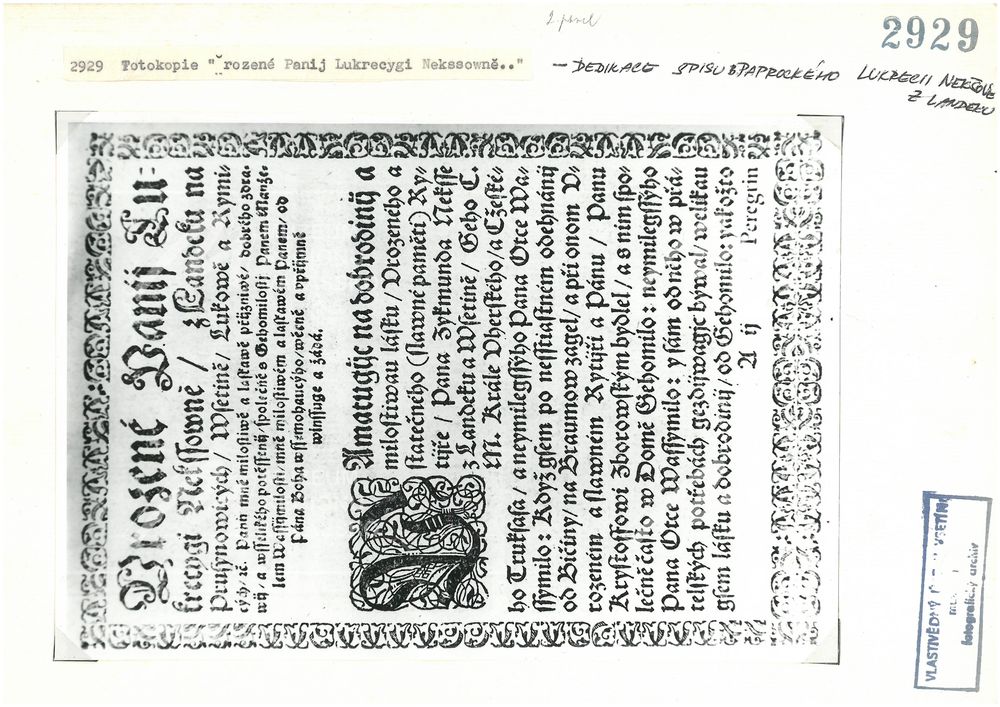 2929
2929 Fotokopie "Ŭrozené Panij Lukrecygi Nekssowně.."
— DEDIKACE SPISU B PAPROCKÉHO LUKRECII NEKŠOVÉ
Z LANDEKU
Vrozené Panij Lu-
krecygi Nekssowně / z Landeku na
Prusynowicých / Wsetině / Lukowě a Rymi-
cých rč. Panij mně milostiwé a laskawě přijzniwé / dobrého zdra-
wij / a wsselikého potěssenij / společně s Gehomilostij Panem Manže-
lem Wassijmilosti / mně milostiwém a laskawém Panem / od
Pána Boha wssemohaucýho / wěrně a vpřijmně
winssuge a žádá.
Amatugic na dobrodinij a
milostiwau lásku / Vrozeného a
statečného (slawné paměti) Ry-
tijře / Pana Zykmunda Neksse
z Landeku a Wsetině / Geho C.
M. Krále Vherského / a Cžeské-
ho Truksasa / a neymilegssýho Pana Otce Wa-
ssýmilo: Když gsem po nesstiastném odehnánij
od Bičiny / na Braumow zagel / a při onom V-
rozeném a slawném Rytijři a Pánu / Panu
Krysstoffowi Zborowským bydlel / a s nim spo-
lečně často w Domě Gehomilo: neymilegssýho
Pana Otce Wassýmilo: y sám od něho w přá-
telských potřebách gezdijwagic býwal / welikau
gsem lásku a dobrodinij / od Gehomilo: yakožto
A ij Peregrin
VLASTIVĚDNÝ VSETÍN
fotografický archiv